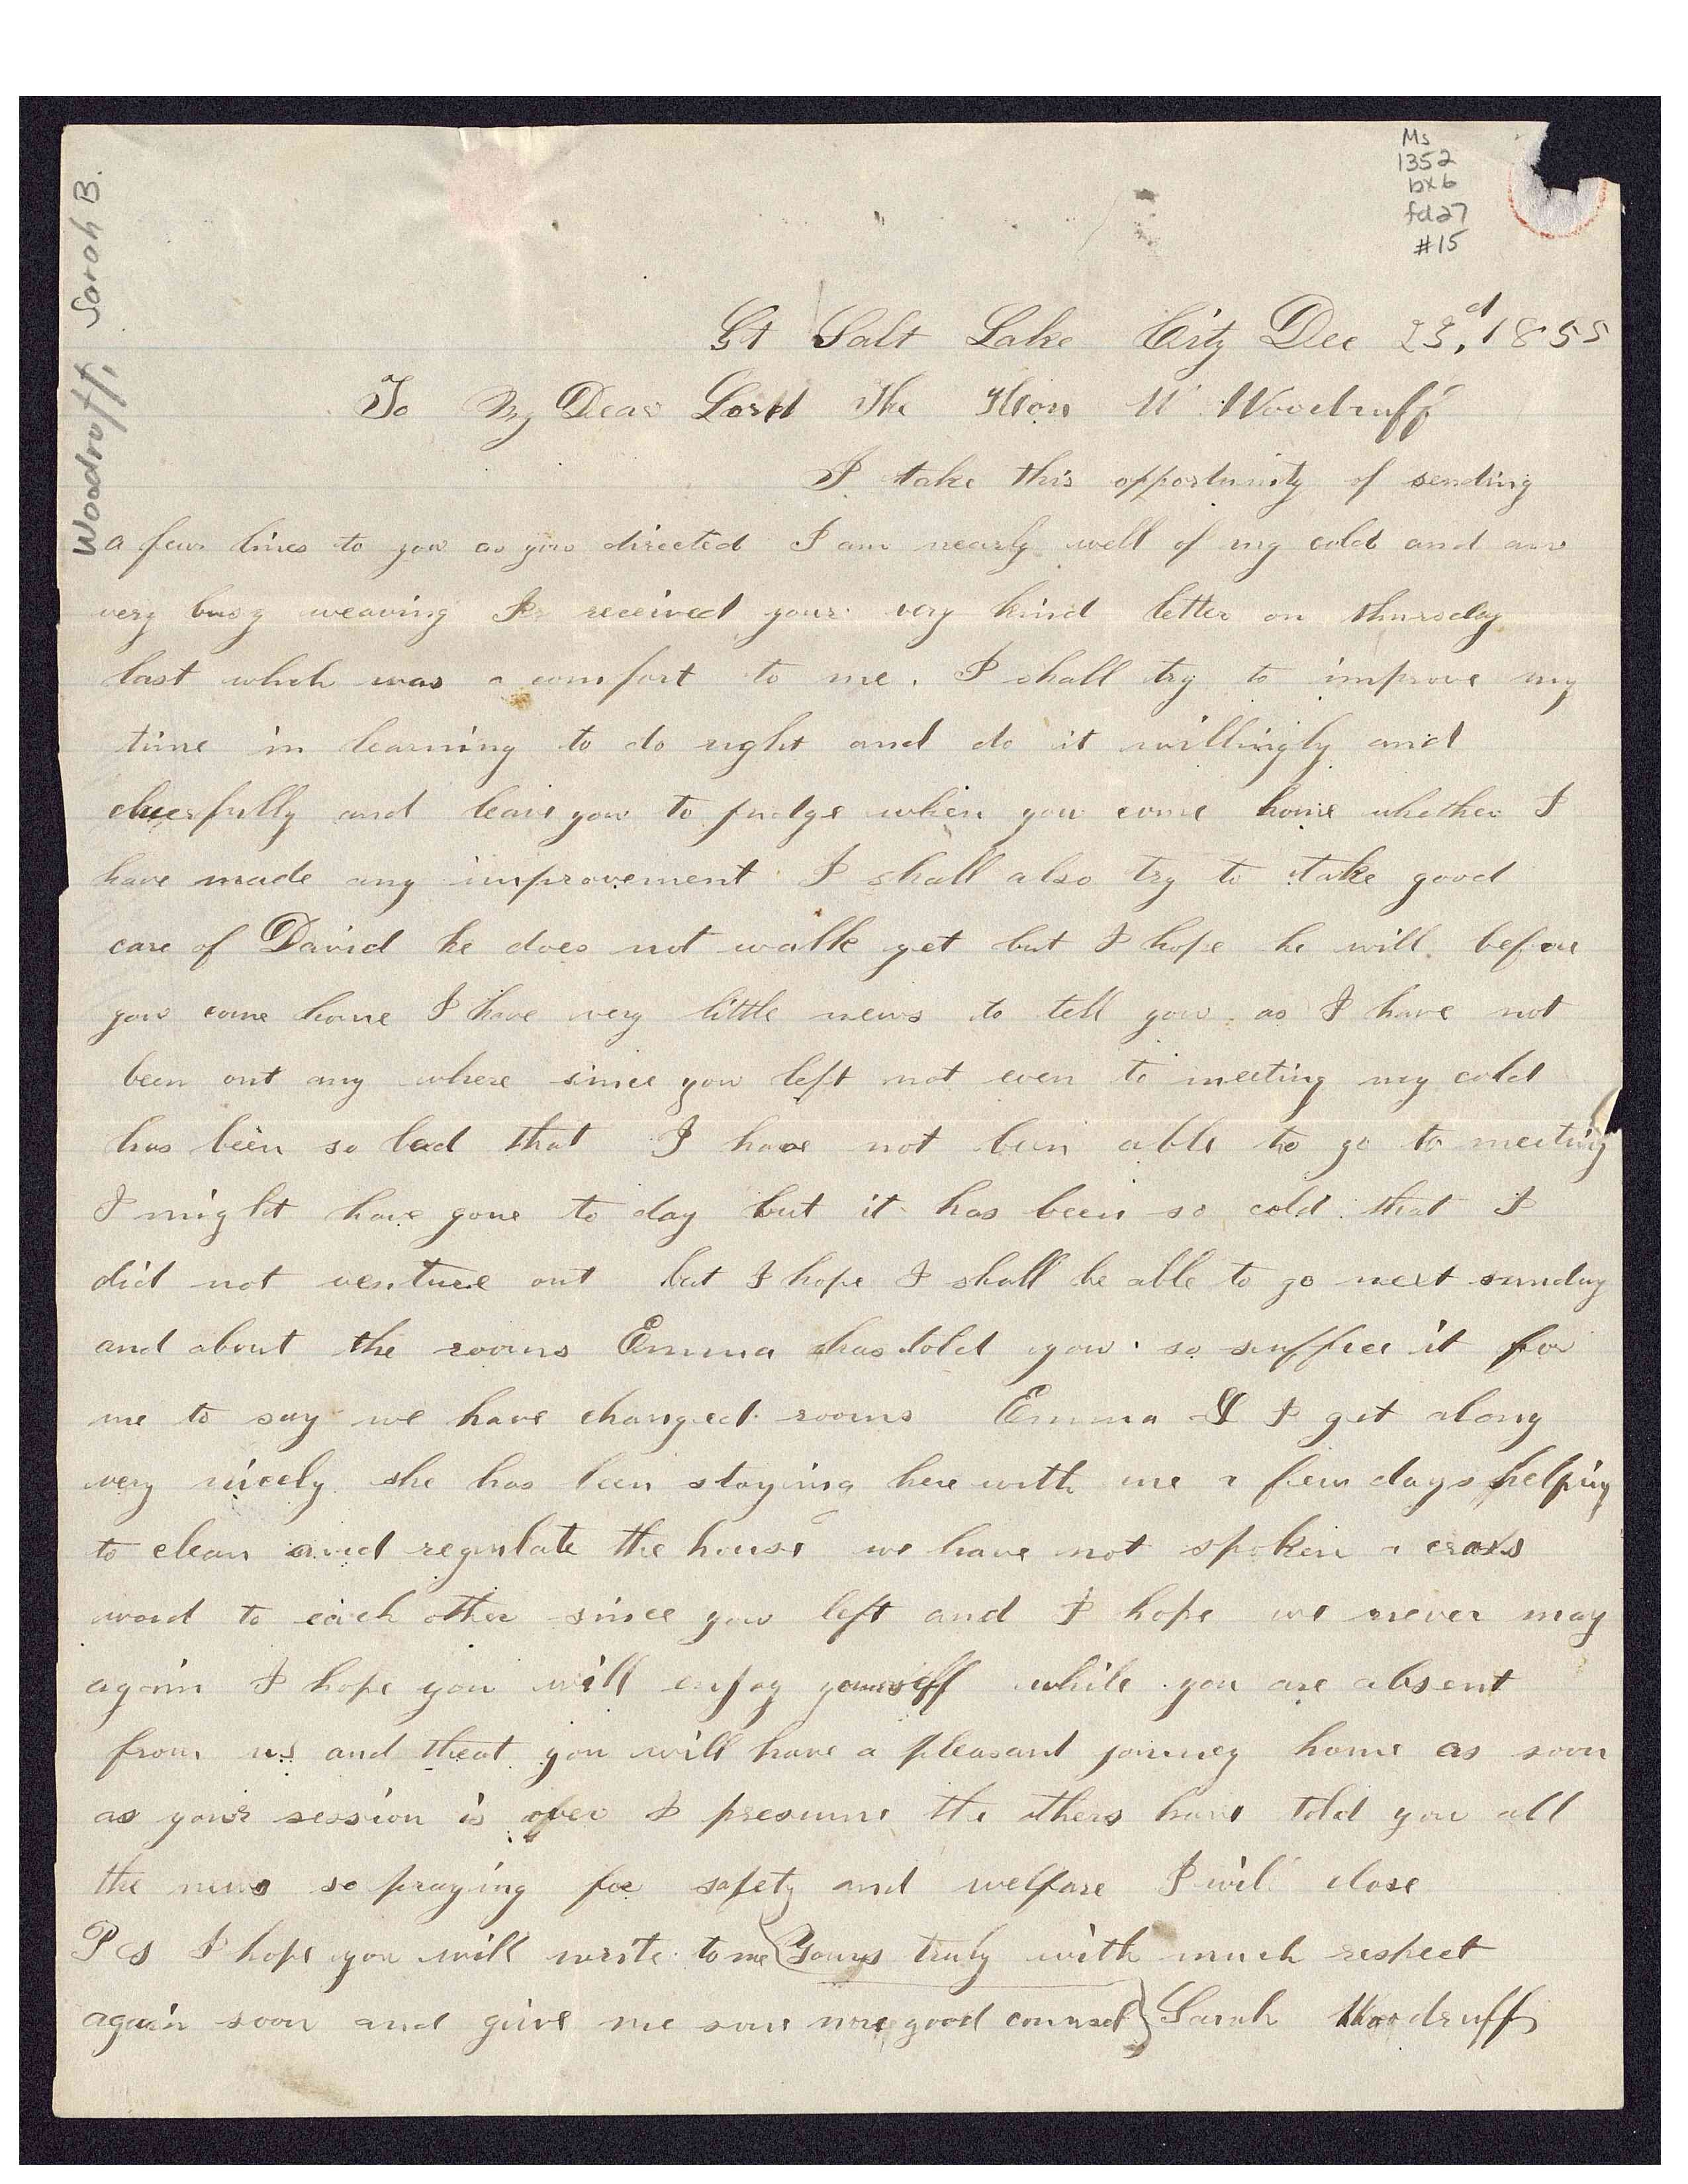 Woodruff, Sarah B.
Ms
1352
bx 6
fd 27
#15
Gt Salt Lake City Dec 23,d 1855
To My Dear Lord The Hon W Woodruff
I take this opportunity of sending
a few lines to you as you directed I am nearly well of my cold and am
very busy weaving I received your very kind letter on thursday
last which was a comfort to me. I shall try to improve my
time in learning to do right and do it willingly and
cheerfully and leave you to judge when you come home whether I
have made any improvement I shall also try to take good
care of David he does not walk yet but I hope he will before
you come home I have very little news to tell you as I have not
been out any where since you left not even to meeting my cold
has been so bad that I have not been able to go to meeting
I might have gone to day but it has been so cold that I
did not venture out but I hope I shall be able to go next sunday
and about the rooms Emma has told you so suffice it for
me to say we have changed rooms Emma & I get along
very nicely she has been staying here with me a few days helping
to clean and regulate the house we have not spoken a cross
word to each other since you left and I hope we never may
again I hope you will enjoy yourself while you are absent
from us and that you will have a pleasant journey home as soon
as your session is over I presume the others have told you all
the news so praying for safety and welfare I will close
P S I hope you will write to me Yours truly with much respect
again soon and give me some more good counsel Sarah Woodruff